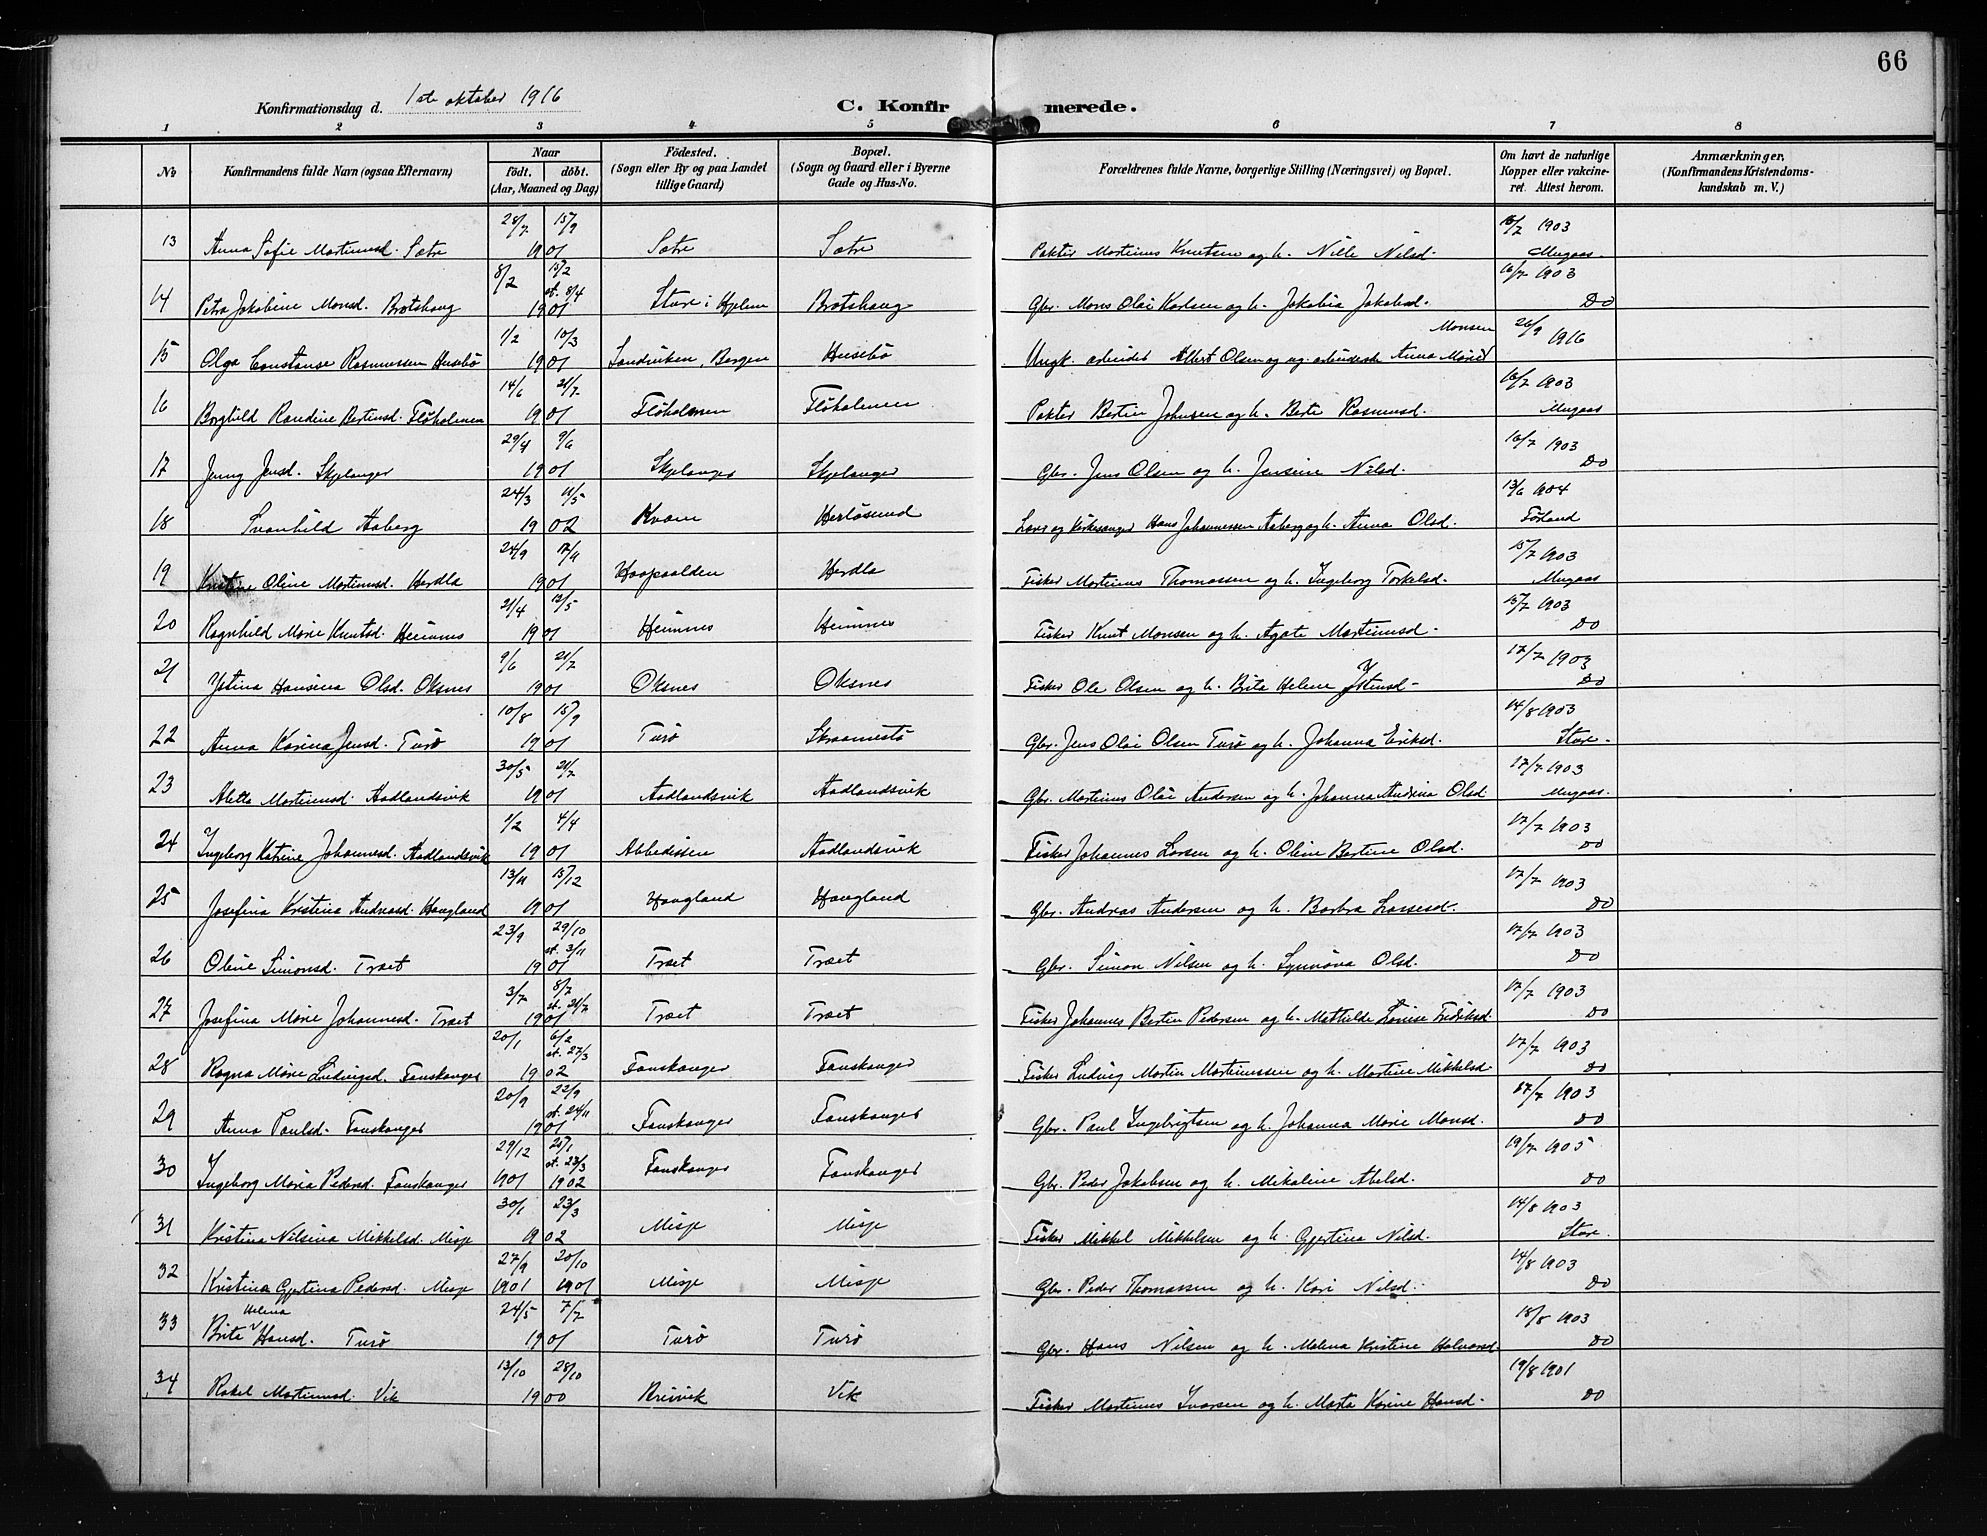 66
Konfirmationsdag d. 1ste oktober 1916
C. Konfirmerede.
1 2 3 4 5 6 7 8
No
Konfirmandens fulde Navn (ogsaa Efternavn)
Naar
Födt. döbt.
(Aar, Maaned og Dag)
Födested.
(Sogn eller By og paa Landet
tillige Gaard)
Bopæl.
(Sogn og Gaard eller i Byerne
Gade og Hus-No.
Forældrenes fulde Navne, borgerlige Stilling (Næringsvei) og Bopæl.
Om havt de naturlige
Kopper eller vakcine-
ret. Attest herom.
Anmærkninger.
(Konfirmandens Kristendoms-
kundskab m. V.)
13 Anna Sofie Martinusd. Sætre 28/7 15/9 1901 Sætre Sætre Pakter Martinus Knutsen og h. Nille Nilsd. 1903 Mugaas.
14 Petra Jakobine Monsd. Brotshaug 8/2 15/2 st. 8/4 1901 Sture i Hjelme Brotshaug Gbr. Mons Olai Karlsen og h. Jakobia Jakobsd. 16/7 1903 Do
15 Olga Constanse Rasmussen Husebö 1/2 10/3 1901 Sandviken, Bergen Husebö Ungk. arbeider Albert Olsen og ug. arbeiderske Anna Marie Monsen 26/9 1916
16 Borghild Randine Bertinsd. Flöholmen 14/6 21/7 1901 Flöholmen Flöholmen Pakter Bertin Johnsen og h. Berte Rasmusd. 16/7 1903 Mugaas
17 Jenny Jensd. Skjelanger 29/4 9/6 1901 Skjelanger Skjelanger Gbr. Jens Olsen og h. Jensine Nilsd. 16/7 1903 Do
18 Svanhild Aaberg 24/3 11/5 1902 Kvam Herlösund Lærer og kirkesanger Hans Johannessen Aaberg og h. Anna Olsd. 13/6 1904 Förland
19 Kristine Oline Martinusd. Herdla 24/9 17/11 1901 Herdla Fisker Martinus Thomassen og h. Ingeborg Torkelsd. 15/7 1903 Mugaas
20 Ragnhild Marie Knutsd. Heimnes 21/4 12/5 1901 Heimnes Heimnes Fisker Knut Monsen og h. Agate Martinusd. 15/7 1903 Do
21 Ystina Hansina Olsd. Oksnes 9/6 21/7 1901 Oksnes Oksnes Fisker Ole Olsen og h. Brita Helene Ystensd. 17/7 1903 Do
22 Anna Karina Jensd. Turö 10/8 15/9 1901 Turö Skraamestö Gbr. Jens Olai Olsen Turö og h. Johanna Eriksd. 14/8 1903 Store.
23 Aletta Martinusd. Aadlandsvik 30/5 21/7 1901 Aadlandsvik Aadlandsvik Gbr. Martinus Olai Andersen og h. Johanna Andrina Olsd. 17/7 1903 Mugaas.
24 Ingeborg Katrine Johannesd. Aadlandsvik 1/2 4/4 1901 Abbedissen Aadlandsvik Fisker Johannes Larsen og h. Oline Bertine Olsd. 17/7 1903 Do
25 Josefina Kristina Andreasd. Haugland 13/11 15/12 1901 Haugland Haugland Gbr. Andreas Andersen og h. Barbra Lassesd. 17/7 1903 Do
26 Oline Simonsd. Træet 23/9 29/10 st. 3/11 1901 Træet Træet Gbr. Simon Nilsen og h. Synnöva Olsd. 17/7 1903 Do
27 Josefina Marie Johannesd. Træet 3/7 8/7 st. 21/7 1901 Træet Træet Fisker Johannes Bertin Pedersen og h. Mathilde Lovise Fredriksd. 17/7 1903 Do
28 Ragna Marie Ludvigsd. Fauskanger 20/1 6/2 st. 27/3 1902 Fauskanger Fauskanger Fisker Ludvig Martin Martinussen og h. Martine Mikkelsd. 17/7 1903 Do
29 Anna Paulsd. Fauskanger 20/9 22/9 st. 24/11 1901 Fauskanger Fauskanger Gbr. Paul Ingebrigtsen og h. Johanna Marie Monsd. 17/7 1903 Do
30 Ingeborg Maria Pedersd. Fauskanger 29/12 1901 25/1 st. 23/3 1902 Fauskanger Fauskanger Gbr. Peder Jakobsen og h. Mikaline Abelsd. 19/7 1905 Do
31 Kristina Nilsina Mikkelsd. Misje 30/1 23/3 1902 Misje Misje Fisker Mikkel Mikkelsen og h. Gjertina Nilsd. 14/8 1903 Store.
32 Kristina Gjertina Pedersd. Misje 27/9 1901 20/10 1901 Misje Misje Gbr. Peder Thomassen og h. Kari Nilsd. 14/8 1903 Do
33 Brita Helena Hansd. Turö 24/5 7/7 1901 Turö Turö Gbr. Hans Nilsen og h. Malena Kristine Halvorsd. 18/8 1903 Do
34 Rakel Martinusd. Vik 13/10 28/10 1900 Breivik Vik Fisker Martinus Ivarsen og h. Marta Karine Hansd. 19/8 1901 Do